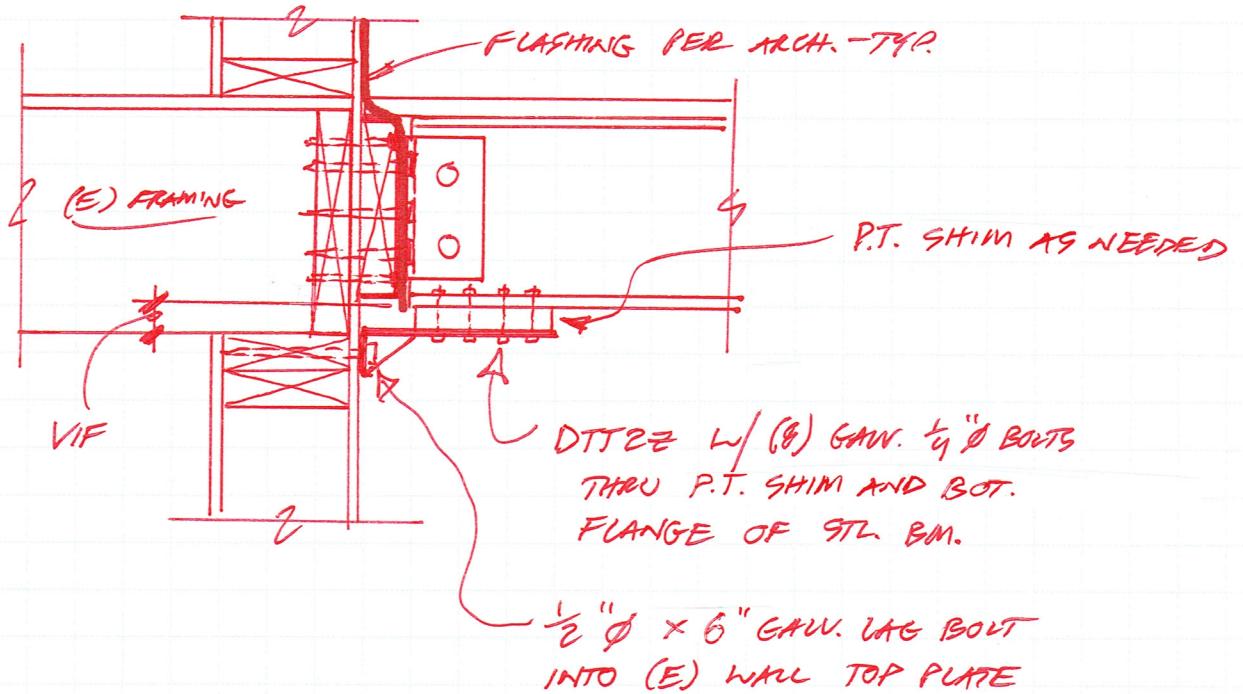 FLASHING PER ARCH. - TYP.
(E) FRAMING
P.T. SHIM AS NEEDED
VIF
DTT2Z W/ (8) GALV. 1/4"Ø BOLTS
THRU P.T. SHIM AND BOT.
FLANGE OF STL. BM.
1/2"Ø x 6" GALV. LAG BOLT
INTO (E) WALL TOP PLATE